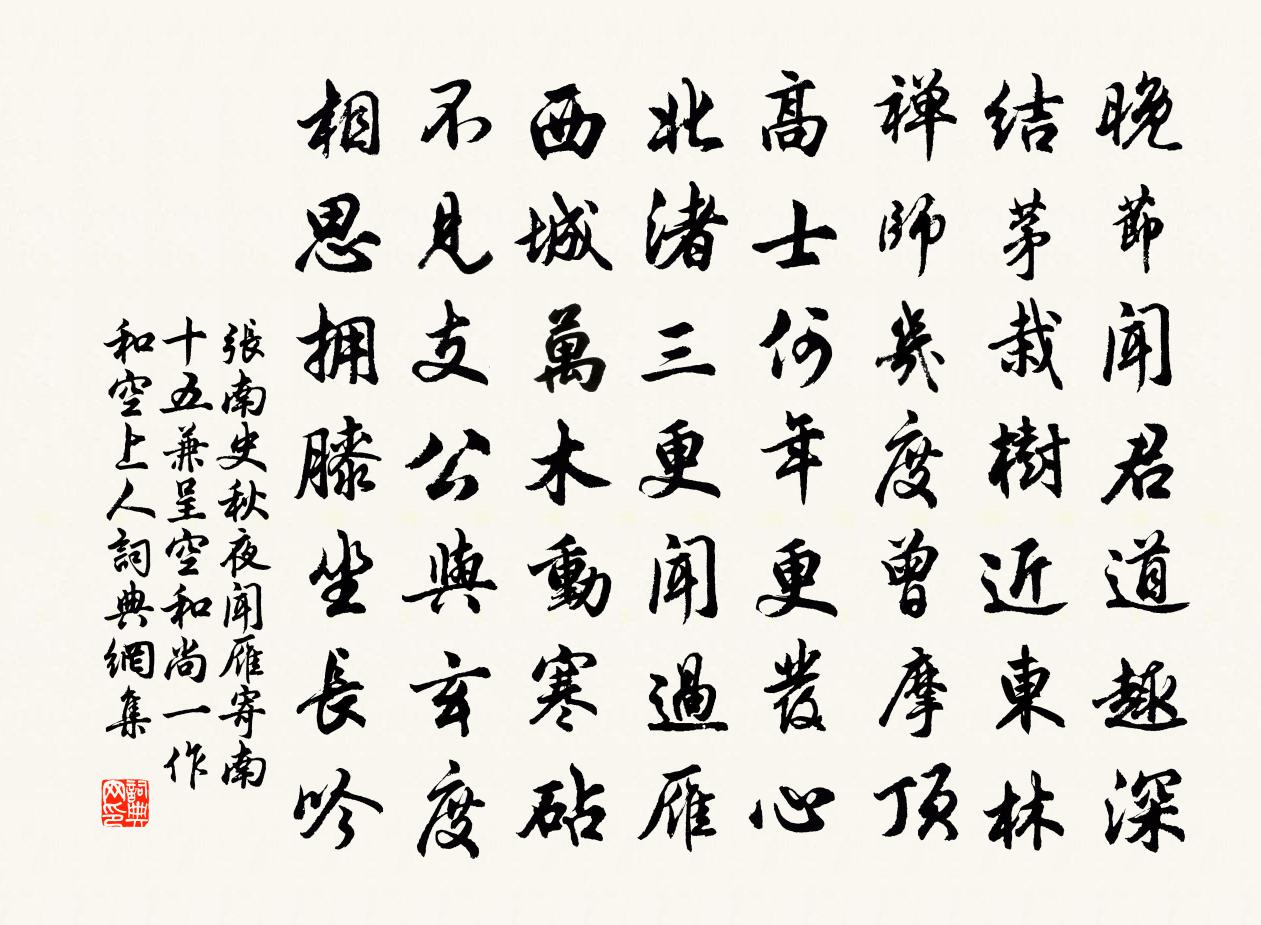 晚節聞君道趣深
結茅栽樹近東林
禅師幾度曾摩頂
高士何年更發心
北渚三更聞過雁
西城萬木動寒砧
不見支公與玄度
相思擁膝坐長吟
張南史秋夜聞雁寄南
十五兼呈空和尚一作
和空上人詞典網集
詞典
网印